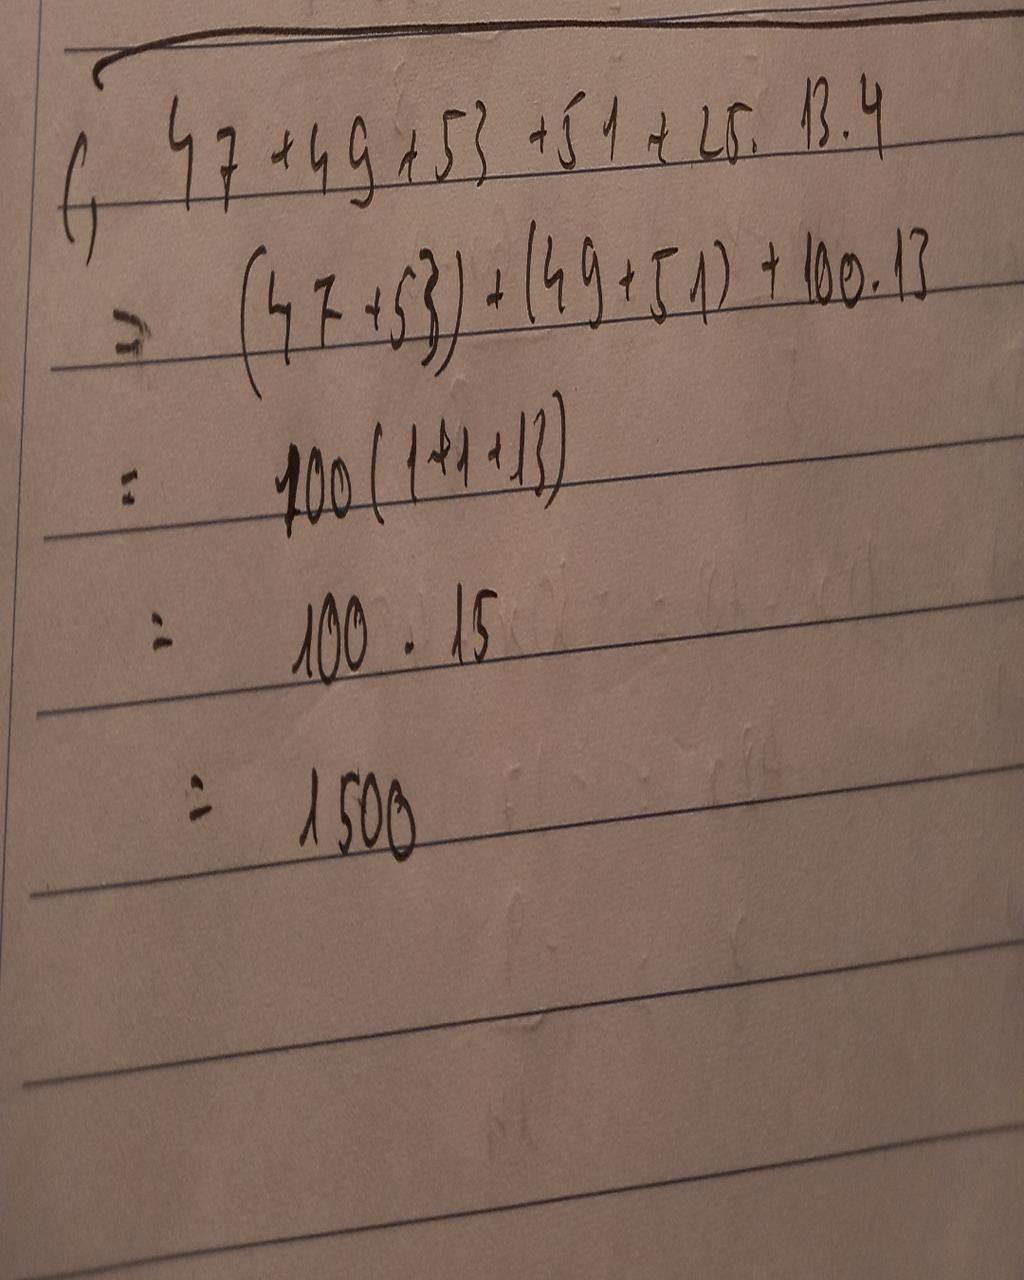 c, 47 + 49 + 53 + 51 + 25. 13.4
= (47 + 53) + (49 + 51) + 100.13
= 100 (1 + 1 + 13)
= 100 . 15
= 1500